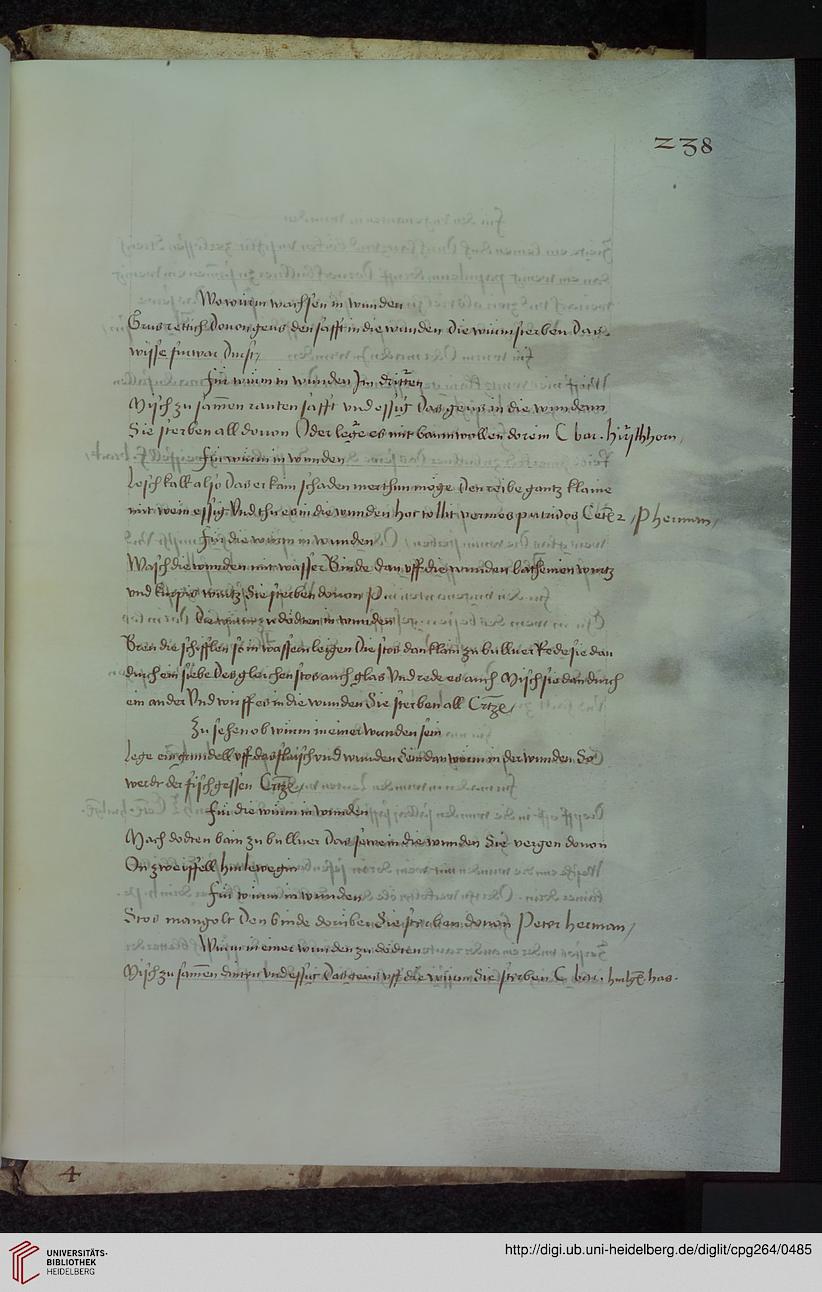 238
Wo würm wachsen in wunden
Grus rettich Dovon geus den safft in die wunden Die würm sterben Das
wisse furwar
Für würm in wunden Im dritten
Misch zu samen rauten safft vnd essig Das geus in die wundenn
Sie sterben all dovon Oder lege es mit baumwollen dorein C bar. hirsthorn
Für würm in wunden
Lesch kalk also Das er kain schaden mer thun möge Den reibe gantz klaine
mit wein essig Vnd thu es in die wunden hoc tollit vermes putridos P herman
Für die würm in wunden
Wasch die wunden mit wasser Binde dan vff die wunden wurtz
vnd wurtz die sterben dovon
Die würm zu dödten in wunden
Bren die schifflen so in wassern leigen Die stos dan klain zu bulluer Rede sie dan
durch ein siebe Des gleichen stos auch glas Vnd rede es auch Misch sie dan durch
ein ander Vnd wirff es in die wunden Sie sterben all
Zu sehen ob würm in einer wunden sein
Lege ein grundell vff das flaisch vnd wunden Sein dan würm in der wunden So
werdt der fisch gessen
Für die würm in wunden
Mach dodten bain zu bulluer Das sewe in die wunden Sie vergen dovon
On zweiffell
Für würm in wunden
Stos mangolt Den binde doruber Sie sterben dovon Peter herman
Würm in einer wunden zu dödten
Misch zu samen vnd essig Das geus vff die würm Sie sterben C bar. has.
4
UNIVERSITÄTS-
BIBLIOTHEK
HEIDELBERG
http://digi.ub.uni-heidelberg.de/diglit/cpg264/0485